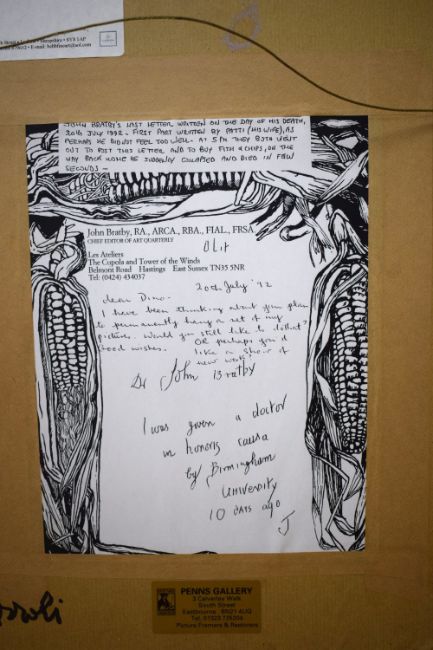 SY8 1AP
E-mail:
JOHN BRATBY'S LAST LETTER WRITTEN ON THE DAY OF HIS DEATH,
20th JULY 1992 - FIRST PART WRITTEN BY PATTI (HIS WIFE), AS
PERHAPS HE DID NOT FEEL TOO WELL. AT 5PM THEY BOTH WENT
OUT TO POST THIS LETTER AND TO BUY FISH & CHIPS, ON THE
WAY BACK HOME HE SUDDENLY COLLAPSED AND DIED IN FEW
SECONDS -
John Bratby, RA., ARCA., RBA., FIAL., FRSA
CHIEF EDITOR OF ART QUARTERLY
D Lit
Les Ateliers
The Cupola and Tower of the Winds
Belmont Road Hastings East Sussex TN35 5NR
Tel: (0424) 434037
20th July '92
dear Dino -
I have been thinking about your plan
to permanently hang a set of my
pictures. Would you still like to do that?
Good wishes. OR perhaps you'd
like a show of
new work
Dr John Bratby
I was given a doctor
in honoris causa
by Birmingham
University
10 DAYS ago
J
PENNS GALLERY
3 Calverley Walk
South Street
Eastbourne BN21 4UQ
Tel. 01323
Picture Framers & Restorers